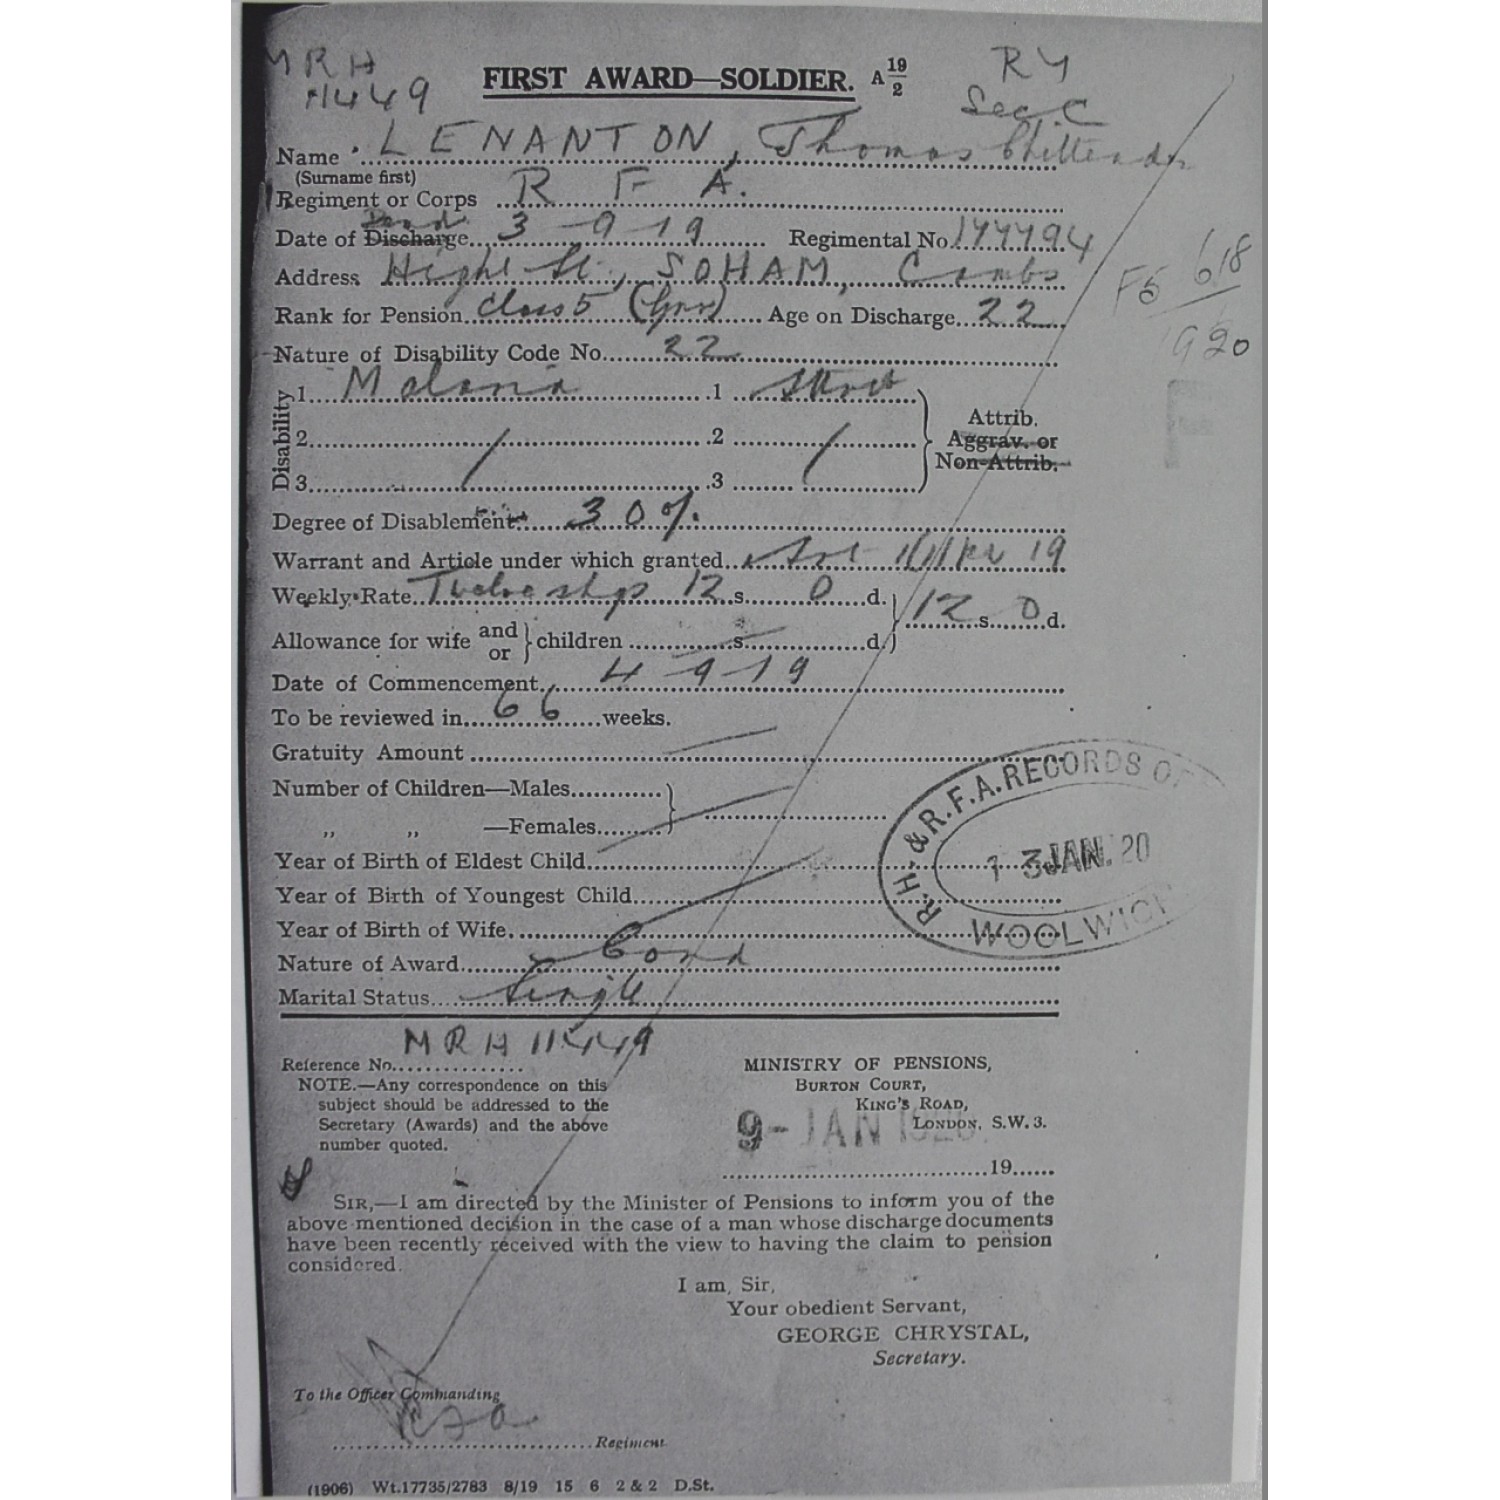 MRH
11449
FIRST AWARD—SOLDIER. A 19/2
RY
Sec. C
Name LENANTON, Thomas Chittenden
(Surname first)
Regiment or Corps R F A.
Date of Discharge 3-9-19 Regimental No. 177794
Address High St., SOHAM, Cambs
Rank for Pension Class 5 (Gnr) Age on Discharge 22
F5 618
1920
Nature of Disability Code No. 22
Disability
1 Malaria .1
2 / .2 /
3 .3
Attrib.
Aggrav. or
Non-Attrib.
Degree of Disablement 30%
Warrant and Article under which granted Art 1(1) 19
Weekly Rate Twelve shgs 12 s. 0 d. } 12 s. 0 d.
Allowance for wife and or } children s. d.
Date of Commencement 4-9-19
To be reviewed in 66 weeks.
Gratuity Amount
Number of Children—Males
" " —Females
Year of Birth of Eldest Child
Year of Birth of Youngest Child
Year of Birth of Wife
Nature of Award Cond
Marital Status Single
R.H. & R.F.A. RECORDS
13 JAN. 20
WOOLWICH
Reference No. MRH 11449
NOTE.—Any correspondence on this
subject should be addressed to the
Secretary (Awards) and the above
number quoted.
MINISTRY OF PENSIONS,
BURTON COURT,
KING'S ROAD,
LONDON, S.W. 3.
9-JAN 1920
19
SIR,—I am directed by the Minister of Pensions to inform you of the
above mentioned decision in the case of a man whose discharge documents
have been recently received with the view to having the claim to pension
considered.
I am, Sir,
Your obedient Servant,
GEORGE CHRYSTAL,
Secretary.
To the Officer Commanding
Regiment
(1906) Wt.17735/2783 8/19 15 6 2 & 2 D.St.